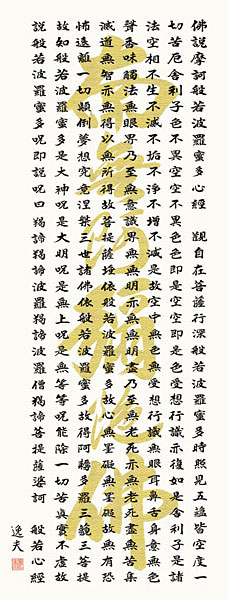 佛説摩訶般若波羅蜜多心經 觀自在菩薩行深般若波羅蜜多時照見五蘊皆空度一
切苦厄舍利子色不異空空不異色色即是空空即是色受想行識亦復如是舍利子是諸
法空相不生不滅不垢不淨不增不減是故空中無色無受想行識無眼耳鼻舌身意無色
聲香味觸法無眼界乃至無意識界無無明亦無無明盡乃至無老死亦無老死盡無苦集
滅道無智亦無得以無所得故菩提薩埵依般若波羅蜜多故心無罣礙無罣礙故無有恐
怖遠離一切顛倒夢想究竟涅槃三世諸佛依般若波羅蜜多故得阿耨多羅三藐三菩提
故知般若波羅蜜多是大神呪是大明呪是無上呪是無等等呪能除一切苦真實不虚故
説般若波羅蜜多呪即説呪曰 羯諦羯諦波羅羯諦波羅僧羯諦菩提薩婆訶 般若心經
逸夫
南無阿彌陀佛